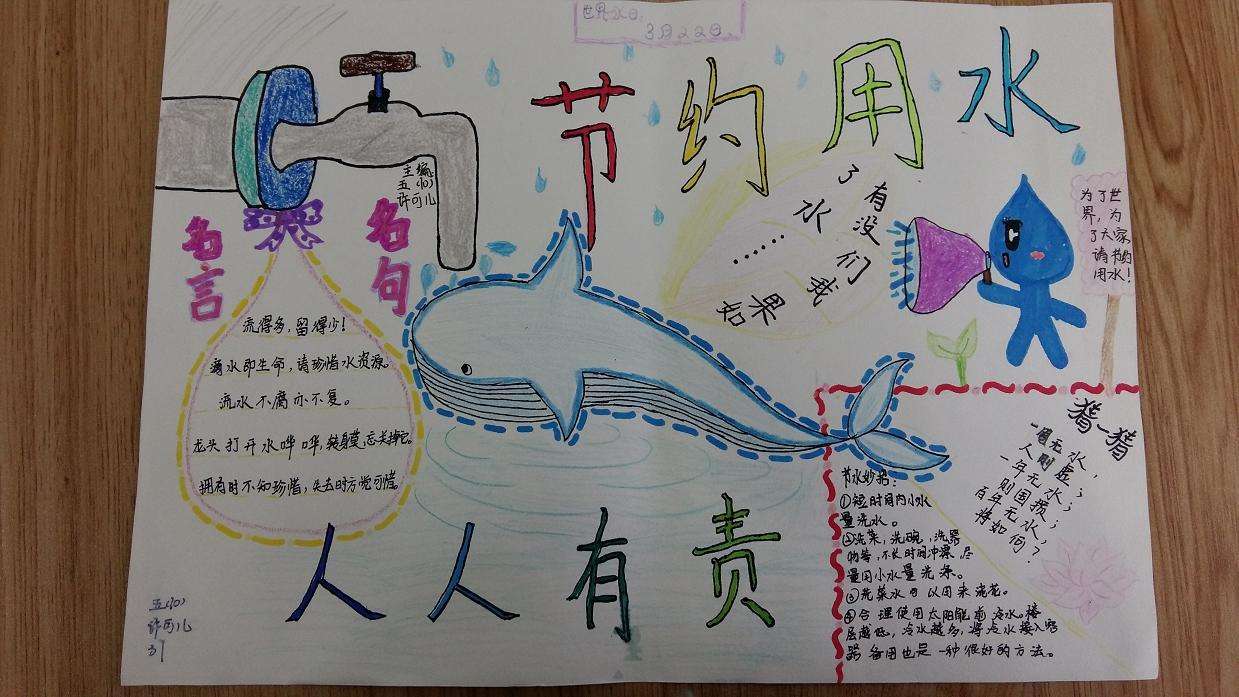 世界水日,
3月22日.
节约用水
主编
五(10)
许可儿
名言
名句
流得多，留得少！
滴水即生命，请珍惜水资源。
流水不腐亦不复。
龙头打开水哗哗，转身莫忘关掉它。
拥有时不知珍惜，失去时方觉可惜。
如果
我们没有
了水……
为了世
界，为
了大家
请节约
用水！
猜一猜
一周无水，
人则虚；
一年无水；
则国损；
百年无水，
将如何？
节水妙招：
①短时间内小水
量洗水。
②洗菜，洗碗，洗器
物等，不长时间冲濯，尽
量用小水量洗涤。
③洗菜水可以用来浇花。
④合理使用太阳能前冷水。楼
层越低，冷水越多，将点水接入
器备用也是一种很好的方法。
人人有责
五(10)
许可儿
31